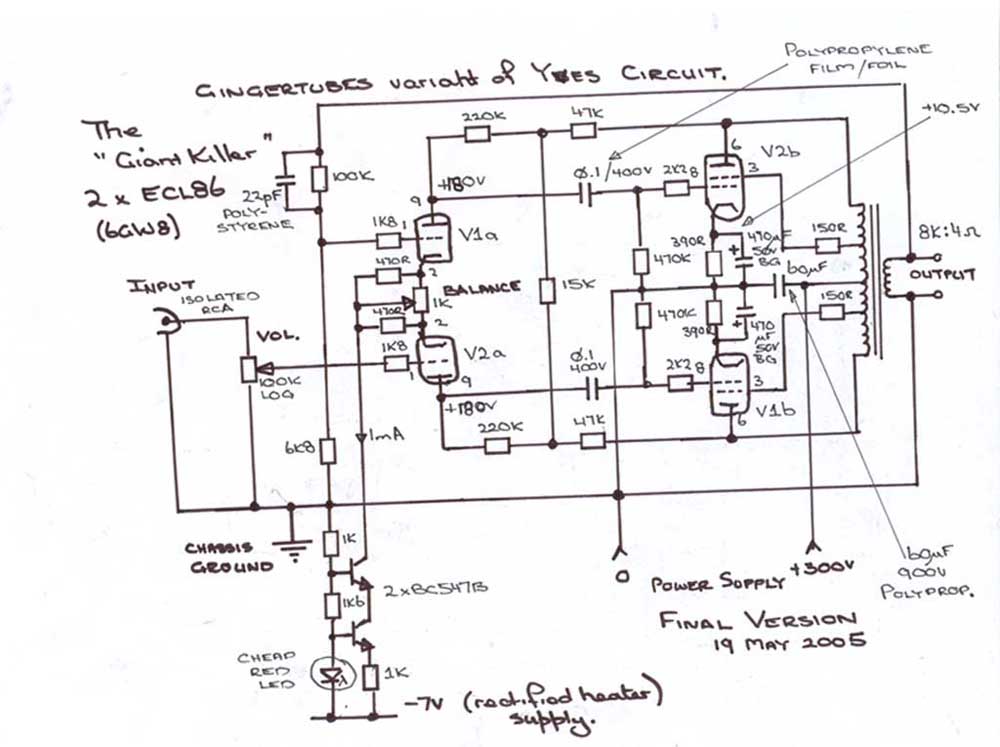 GINGERTUBES variant of YVES CIRCUIT.
POLYPROPYLENE
FILM/FOIL
+10.5V
The
"Giant Killer"
2 x ECL86
(6GW8)
220K
47K
6
V2b
3
0.1/400V
2K2
8
22pF
POLY-
STYRENE
100K
+180V
9
1K8
1
V1a
2
470R
BALANCE
1K
470R
2
1K8
1
V2a
9
+180V
15K
470K
390R
470µF
50V
BG
60µF
150R
8K:4Ω
OUTPUT
150R
470K
390R
470
µF
50V
BG
INPUT
ISOLATED
RCA
VOL.
100K
LOG
0.1
400V
2K2
8
3
V1b
6
1mA
220K
47K
6K8
CHASSIS
GROUND
1K
2xBC547B
1K6
CHEAP
RED
LED
1K
-7V (rectified heater)
supply.
0
POWER SUPPLY
+300V
60µF
900V
POLYPROP.
FINAL VERSION
19 MAY 2005